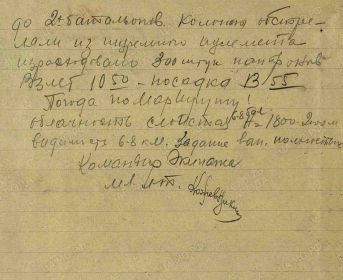 до 2х батальонов. Колонна обстре-
ляли из пулемета
израсходовано 300 штук патронов
Взлет 10 50 - посадка 13/55
Погода по маршруту!
облачность слоистая 6-8 бал. H= 1800-2000 м
видимость 6-8 км. Задание вып. полностью
Командир Экипажа
мл. лт.